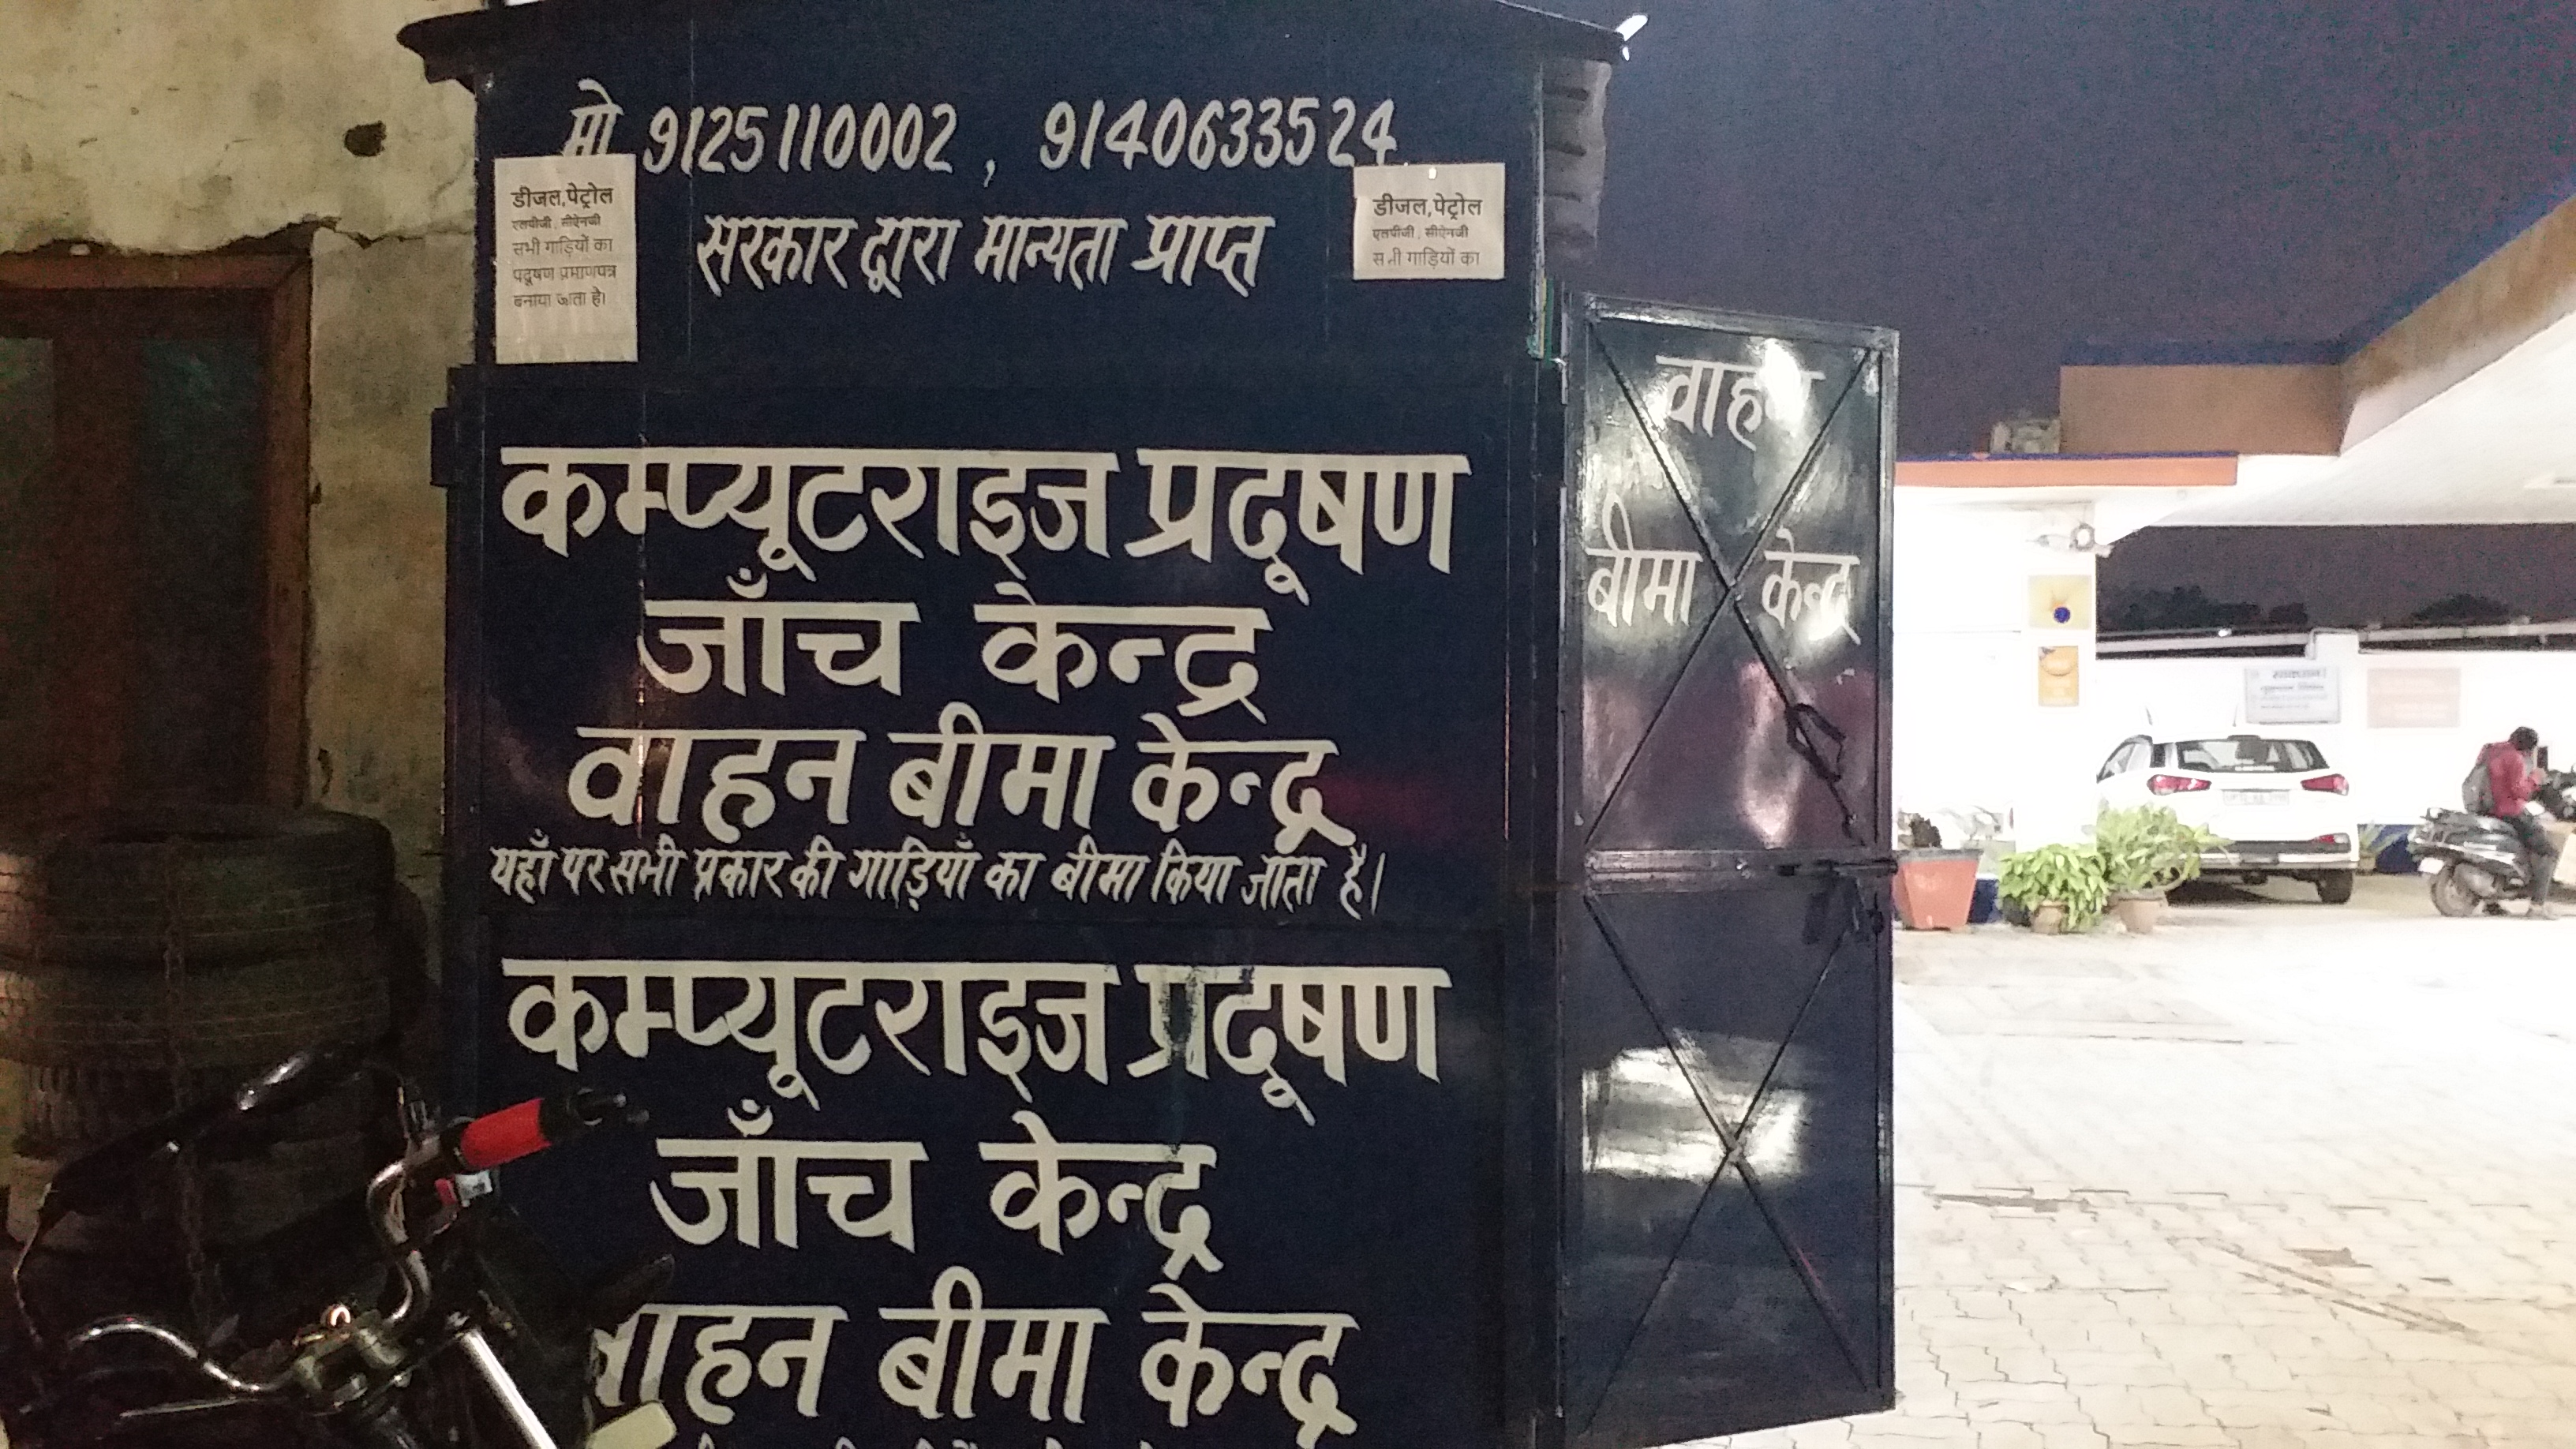 मो 9125110002, 9140633524
डीजल,पेट्रोल
एलपीजी, सीऐनजी
सभी गाड़ियों का
पदूषण प्रमाणपत्र
बनाया जाता हे।
डीजल,पेट्रोल
एलपीजी, सीऐनजी
सभी गाड़ियों का
सरकार द्वारा मान्यता प्राप्त
कम्प्यूटराइज प्रदूषण
जाँच केन्द्र
वाहन बीमा केन्द्र
यहाँ पर सभी प्रकार की गाड़ियाँ का बीमा किया जाता है।
कम्प्यूटराइज प्रदूषण
जाँच केन्द्र
वाहन बीमा केन्द्र
वाहन
बीमा केन्द्र